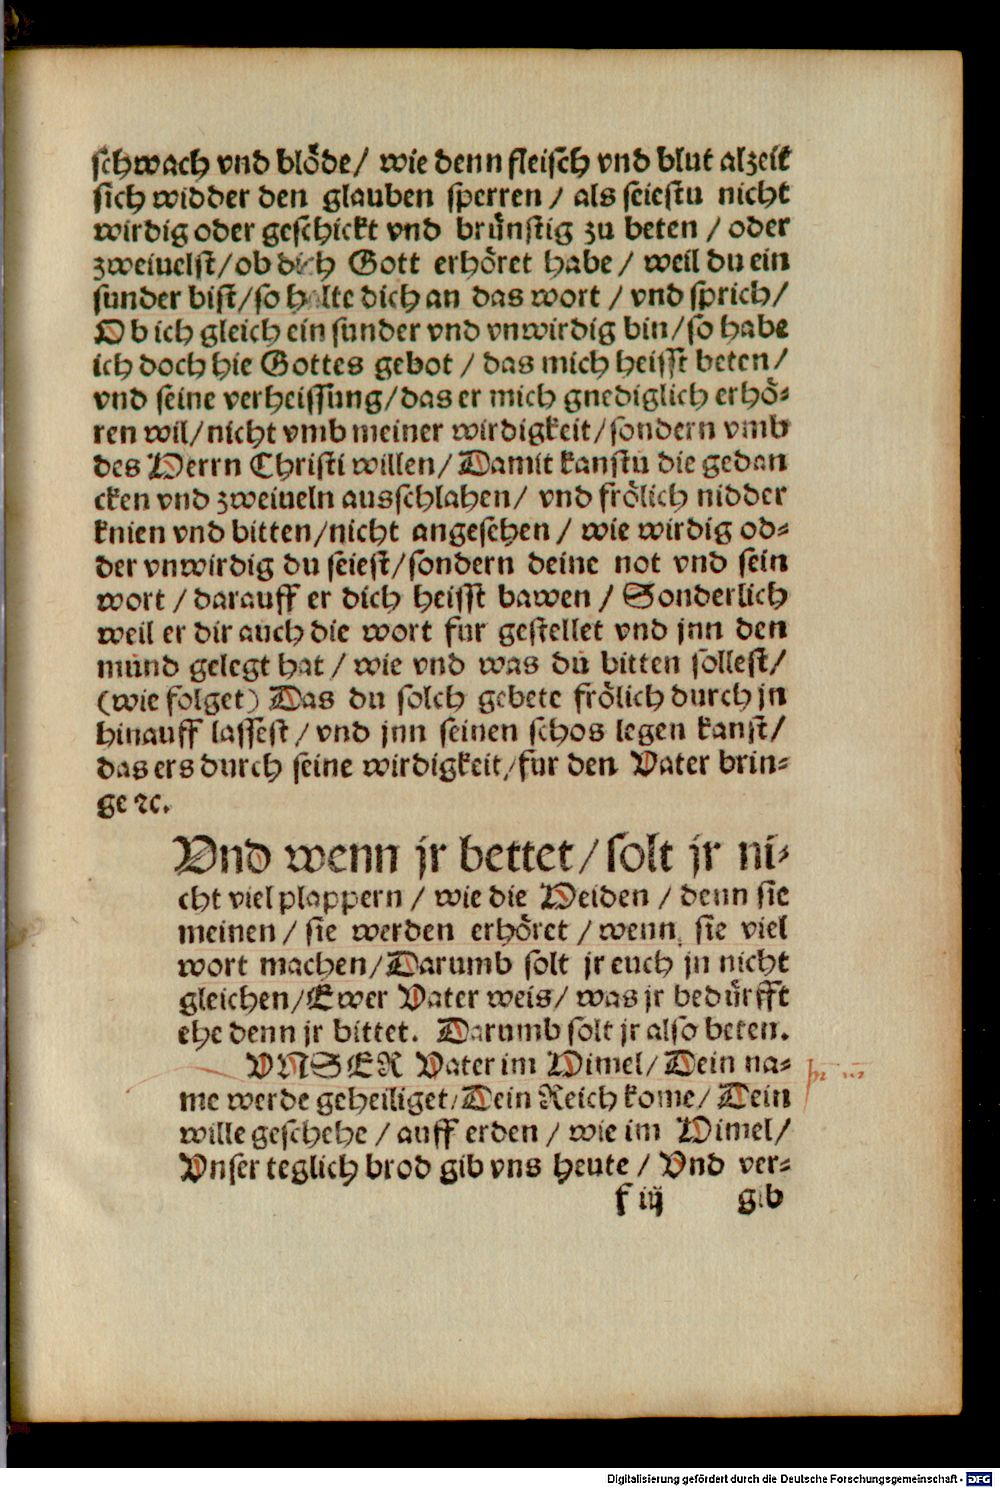 schwach vnd blöde/ wie denn fleisch vnd blut alzeit
sich widder den glauben sperren / als seiestu nicht
wirdig oder geschickt vnd brünstig zu beten / oder
zweiuelst/ob dich Gott erhöret habe / weil du ein
sunder bist/so halte dich an das wort / vnd sprich/
Ob ich gleich ein sunder vnd vnwirdig bin/so habe
ich doch hie Gottes gebot / das mich heisst beten/
vnd seine verheissung/das er mich gnediglich erhö-
ren wil/nicht vmb meiner wirdigkeit/sondern vmb
des Herrn Christi willen/Damit kanstu die gedan
cken vnd zweiueln ausschlahen/ vnd frölich nidder
knien vnd bitten/nicht angesehen / wie wirdig od-
der vnwirdig du seiest/sondern deine not vnd sein
wort / darauff er dich heisst bawen / Sonderlich
weil er dir auch die wort fur gestellet vnd jnn den
mund gelegt hat / wie vnd was du bitten sollest/
(wie folget) Das du solch gebete frölich durch jn
hinauff lassest/ vnd jnn seinen schos legen kanst/
das ers durch seine wirdigkeit/fur den Vater brin-
ge ꝛc.
Vnd wenn jr bettet/solt jr ni-
cht viel plappern / wie die Heiden / denn sie
meinen / sie werden erhöret / wenn sie viel
wort machen/Darumb solt jr euch jn nicht
gleichen/Ewer Vater weis/ was jr bedürfft
ehe denn jr bittet. Darumb solt jr also beten.
VNSER Vater im Himel/Dein na-
me werde geheiliget/Dein Reich kome/ Dein
wille geschehe / auff erden / wie im Himel/
Vnser teglich brod gib vns heute / Vnd ver-
f iij gib
Digitalisierung gefördert durch die Deutsche Forschungsgemeinschaft - DFG